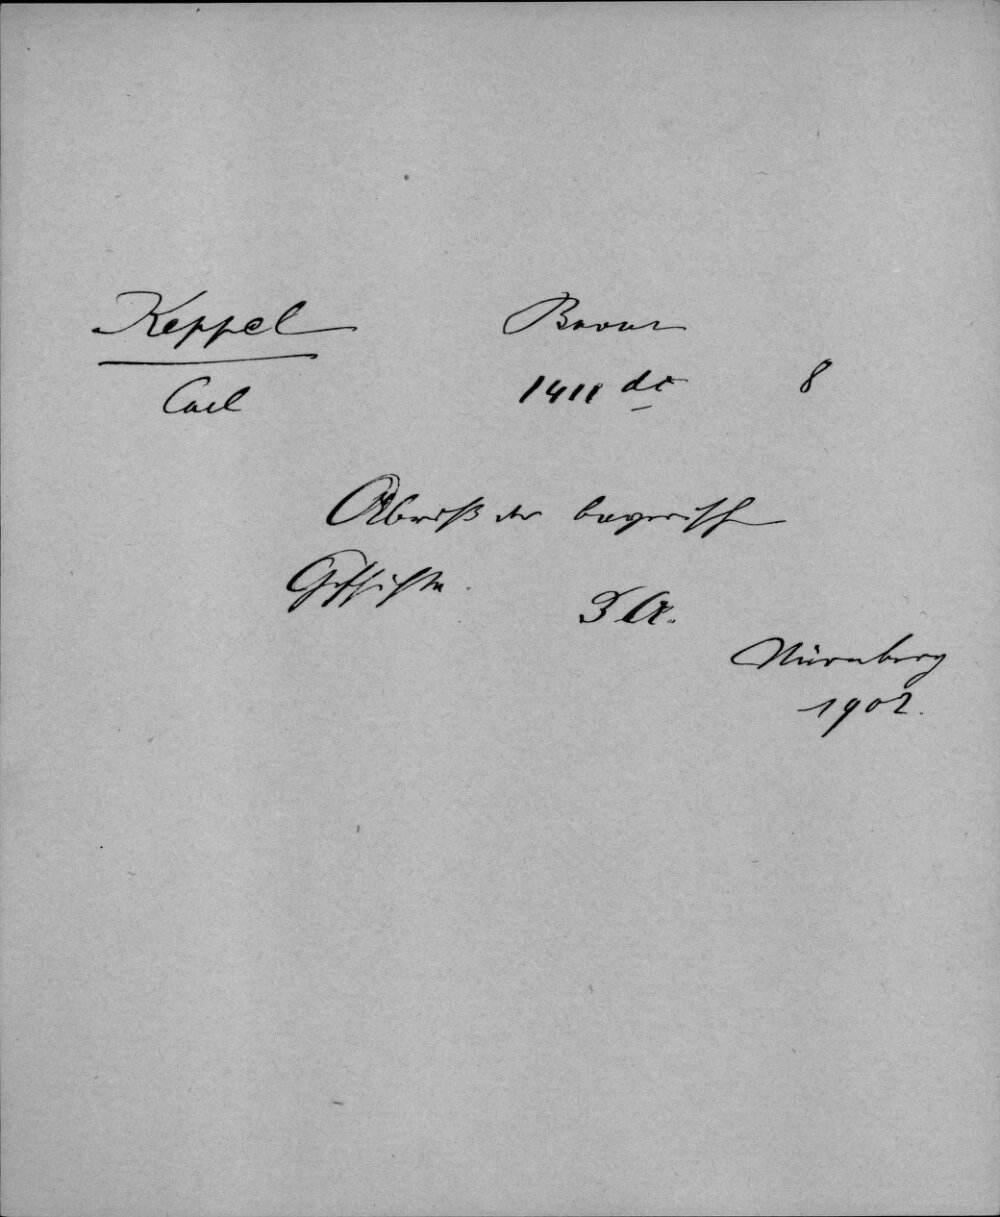 Keppel
Carl
Bavar
1411 dc 8
Abriß der bayerisch
Geschichte.
3 A.
Nürnberg
1902.